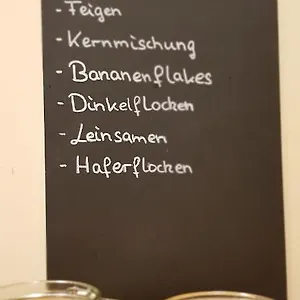 - Feigen
- Kernmischung
- Bananenflakes
- Dinkelflocken
- Leinsamen
- Haferflocken